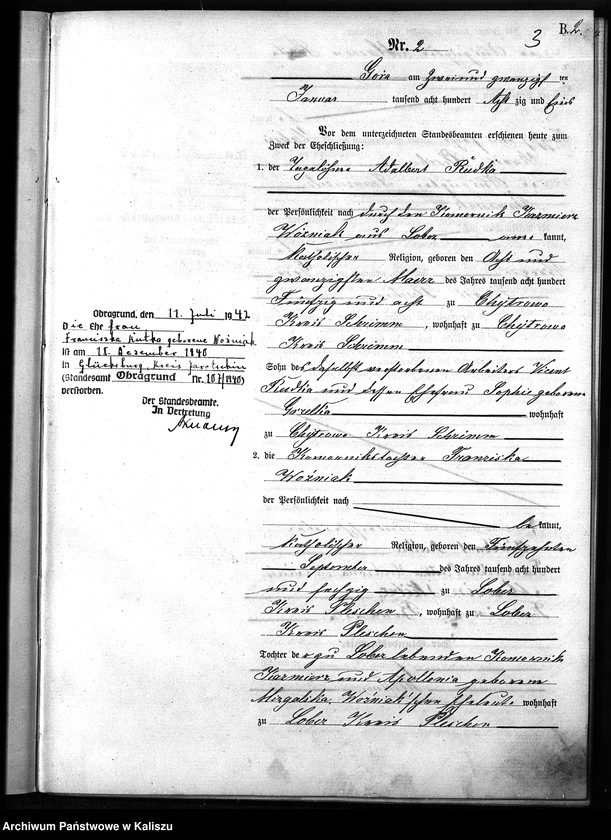 B. 2.
3
Nr. 2
Gora am zwei und zwanzigsten
Januar tausend acht hundert Acht zig und
Vor dem unterzeichneten Standesbeamten erschienen heute zum
Zweck der Eheschließung:
1. der Tagelöhner Adalbert Rudka
der Persönlichkeit nach durch den Komornik Kazmierz
Woźniak aus Lober kannt,
katholischer Religion, geboren den Acht und
zwanzigsten Maerz des Jahres tausend acht hundert
Fünfzig und acht zu Chytrowo
Kreis Schrimm, wohnhaft zu Chytrowo
Kreis Schrimm
Sohn des daselbst verstorbenen Arbeiters Vicent
Rudka und dessen Ehefrau Sophie geborene
wohnhaft
zu Chytrowo Kreis Schrimm
2. die Komornikstochter Franziska
Woźniak
der Persönlichkeit nach
bekannt,
katholischer Religion, geboren den Fünfzehnten
September des Jahres tausend acht hundert
und sechzig zu Lober
Kreis Pleschen, wohnhaft zu Lober
Kreis Pleschen
Tochter der zu Lober lebenden Komornik
Kazmierz und Apollonia geborene
Woźniak'schen Eheleute wohnhaft
zu Lober Kreis Pleschen
Obragrund, den 11. Juli 1942
Die Ehefrau
Franziska Rutka geborene Woźniak
ist am 18. Dezember 1940
in Glücksburg, Kreis Jarotschin
(Standesamt Obragrund Nr. 107/1940)
verstorben.
Der Standesbeamte.
In Vertretung
Archiwum Państwowe w Kaliszu